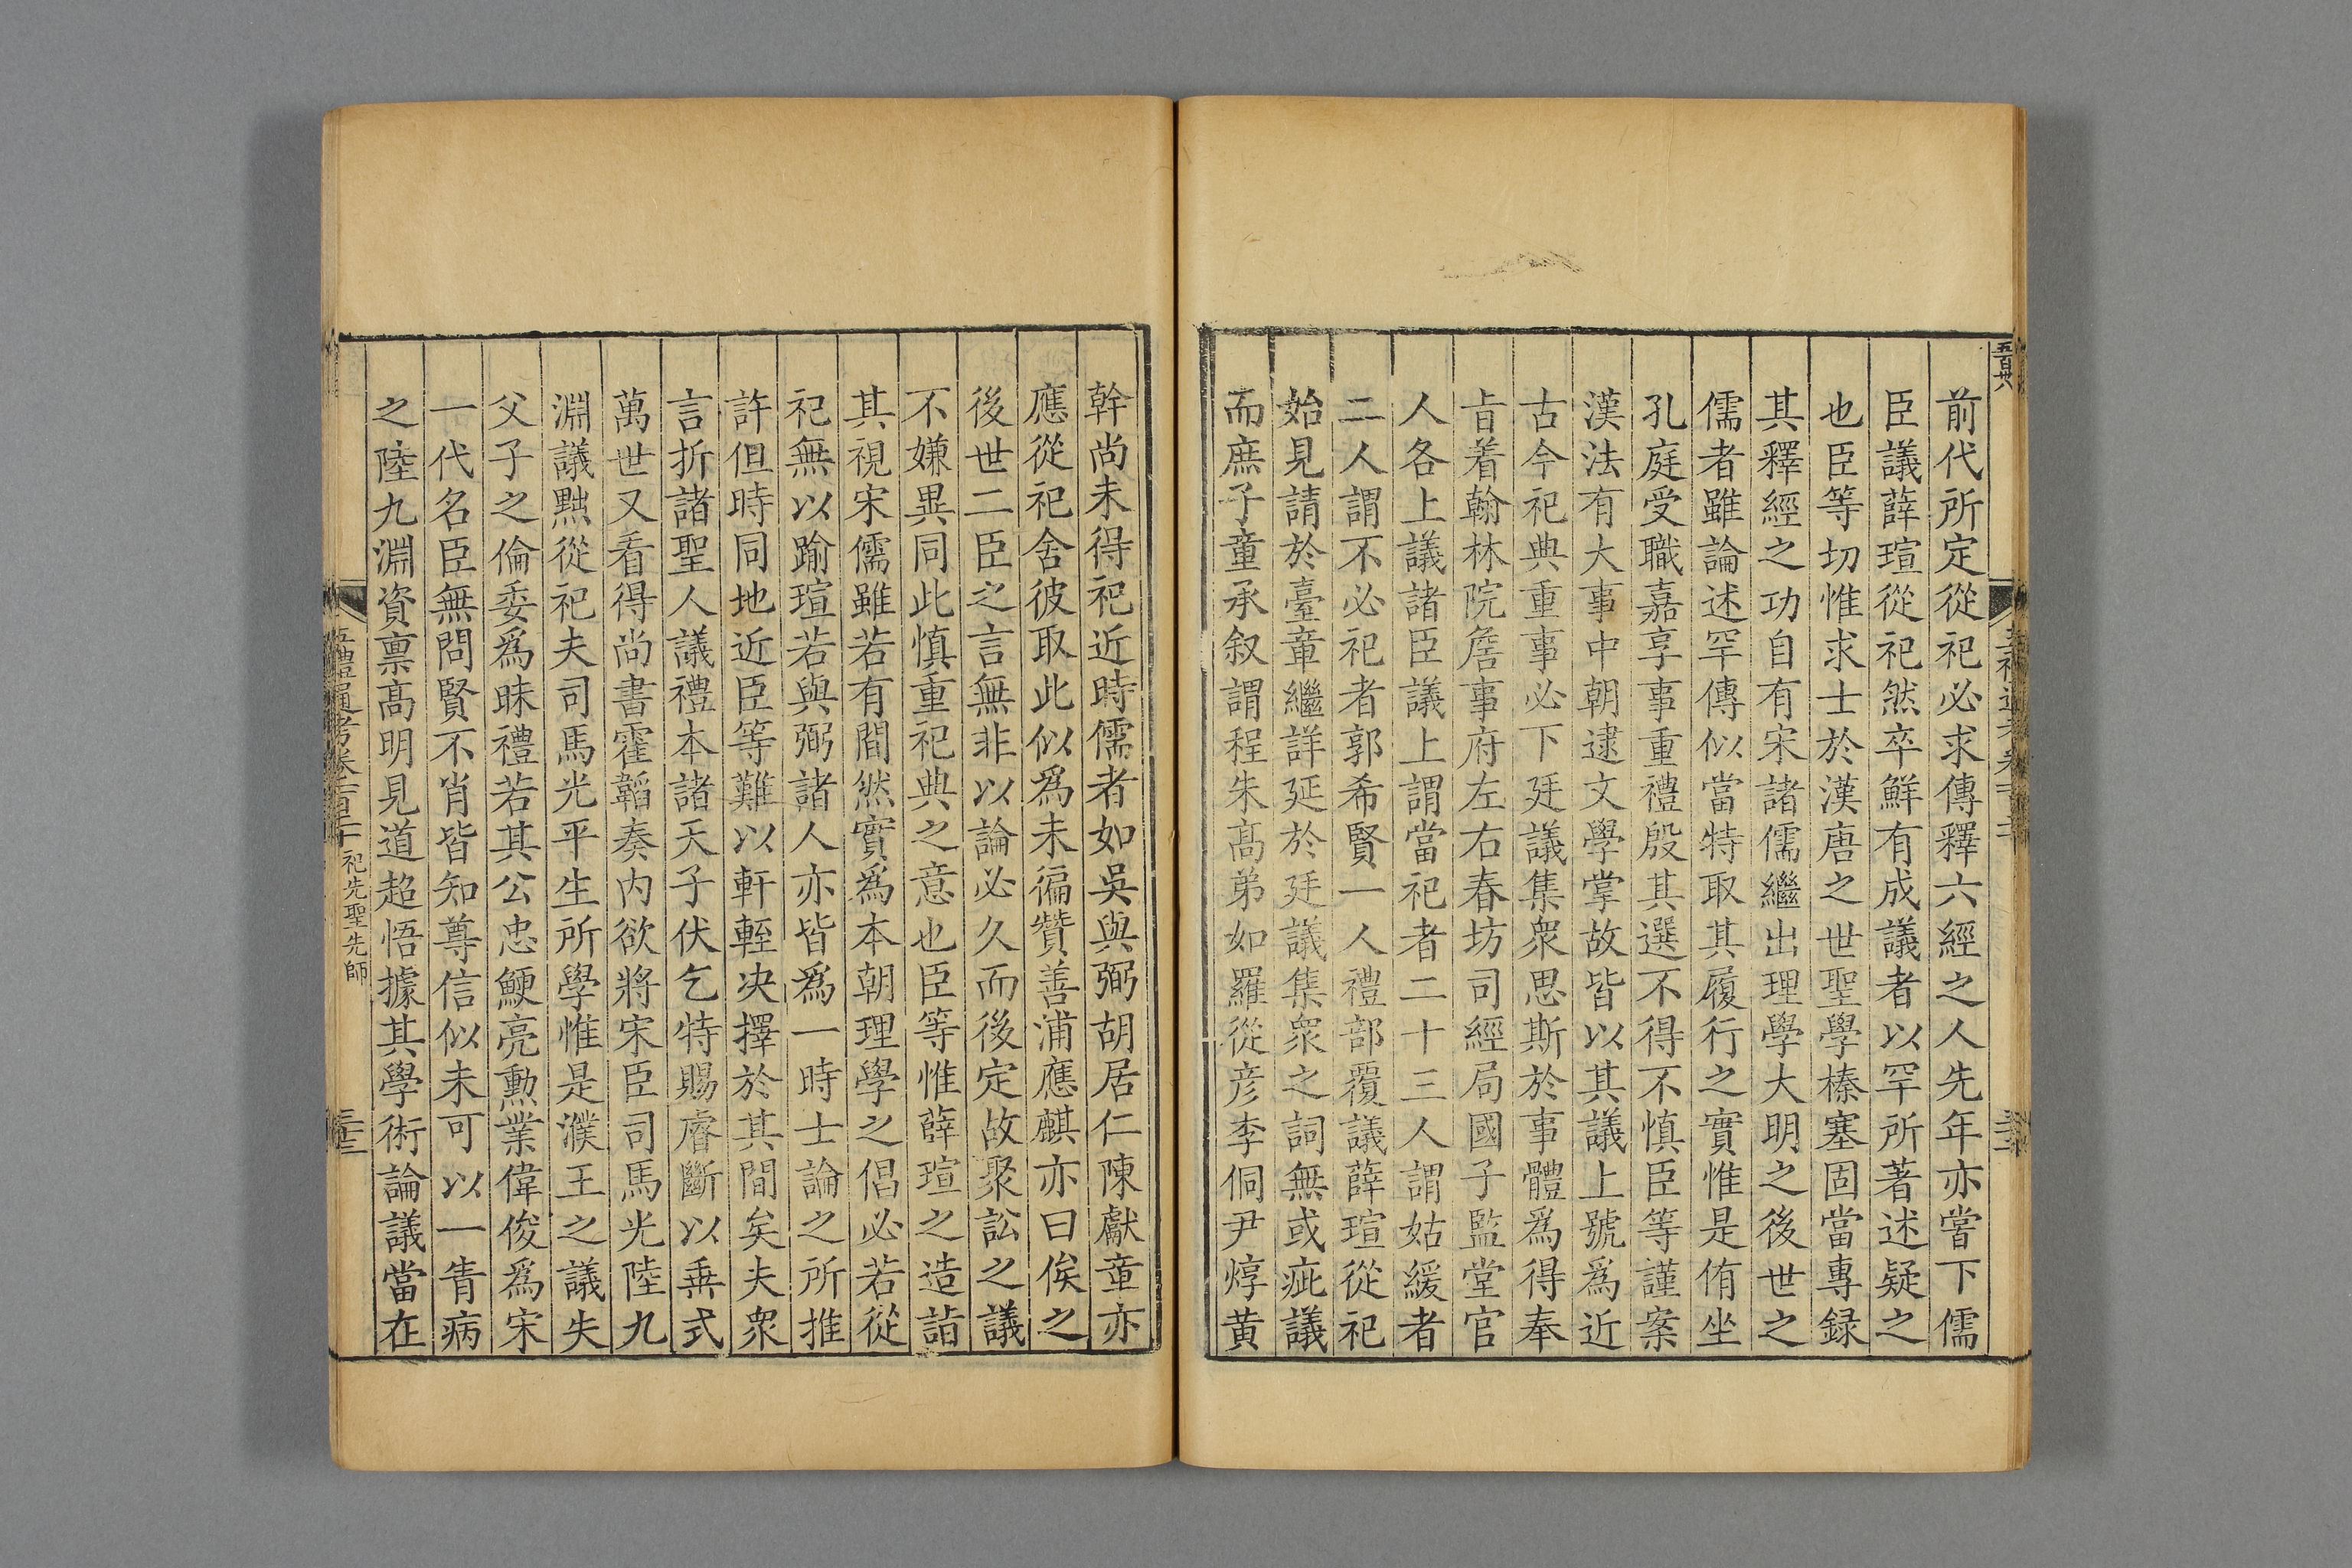 前代所定從祀必求傳釋六經之人先年亦嘗下儒
臣議薛瑄從祀然卒鮮有成議者以罕所著述疑之
也臣等切惟求士於漢唐之世聖學榛塞固當專録
其釋經之功自有宋諸儒繼出理學大明之後世之
儒者雖論述罕傳似當特取其履行之實惟是侑坐
孔庭受職嘉享事重禮殷其選不得不慎臣等謹案
漢法有大事中朝逮文學掌故皆以其議上號為近
古今祀典重事必下廷議集衆思斯於事體為得奉
㫖着翰林院詹事府左右春坊司經局國子監堂官
人各上議諸臣議上謂當祀者二十三人謂姑緩者
二人謂不必祀者郭希賢一人禮部覆議薛瑄從祀
始見請於臺章繼詳延於廷議集衆之詞無或疵議
而庶子童承叙謂程朱髙弟如羅從彦李侗尹焞黄
幹尚未得祀近時儒者如吳與弼胡居仁陳獻章亦
應從祀舍彼取此似爲未徧贊善浦應麒亦曰俟之
後世二臣之言無非以論必久而後定故聚訟之議
不嫌異同此慎重祀典之意也臣等惟薛瑄之造詣
其視宋儒雖若有間然實爲本朝理學之倡必若從
祀無以踰瑄若與弼諸人亦皆爲一時士論之所推
許但時同地近臣等難以軒輊决擇於其間矣夫衆
言折諸聖人議禮本諸天子伏乞特賜睿斷以垂式
萬世又看得尚書霍韜奏内欲將宋臣司馬光陸九
淵議黜從祀夫司馬光平生所學惟是濮王之議失
父子之倫委爲昧禮若其公忠鯁亮勳業偉俊爲宋
一代名臣無問賢不肖皆知尊信似未可以一眚病
之陸九淵資禀髙明見道超悟據其學術論議當在
五禮通考卷一百二十
祀先聖先師